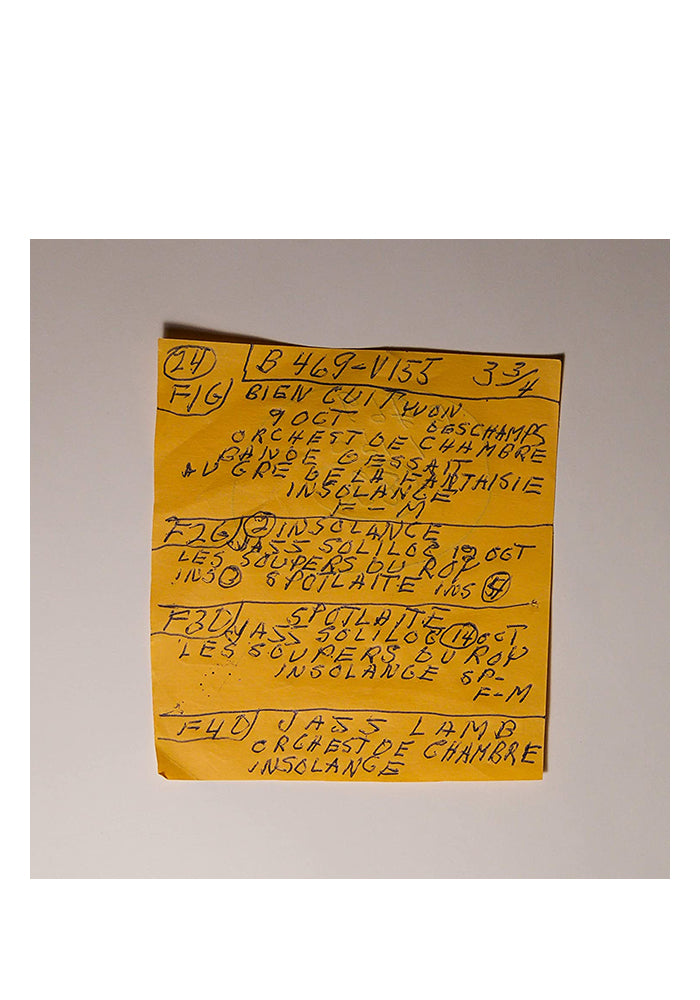 24 B 469-V155 3 3/4
F1G BIEN CUIT YVON
9 OCT DESCHAMPS
ORCHEST DE CHAMBRE
BANDE DESSAIT
AU GRE DE LA FANTAISIE
INSOLANGE
F-M
F2G 2 INSOLANGE
JASS SOLILOG 19 OCT
LES SOUPERS DU ROY
INS SPOTLAITE INS
F3D SPOTLAITE
JASS SOLILOG 14 OCT
LES SOUPERS DU ROY
INSOLANGE SP-
F-M
F4D JASS LAMB
ORCHEST DE CHAMBRE
INSOLANGE